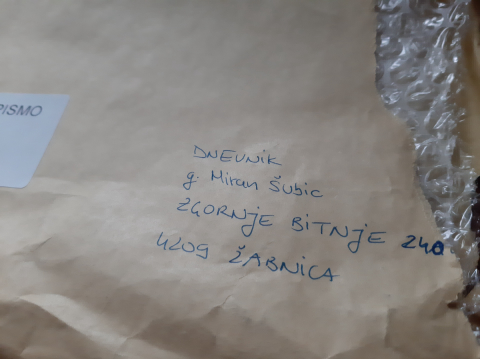 PISMO
DNEVNIK
g. Miran Šubic
ZGORNJE BITNJE 240
4209 ŽABNICA